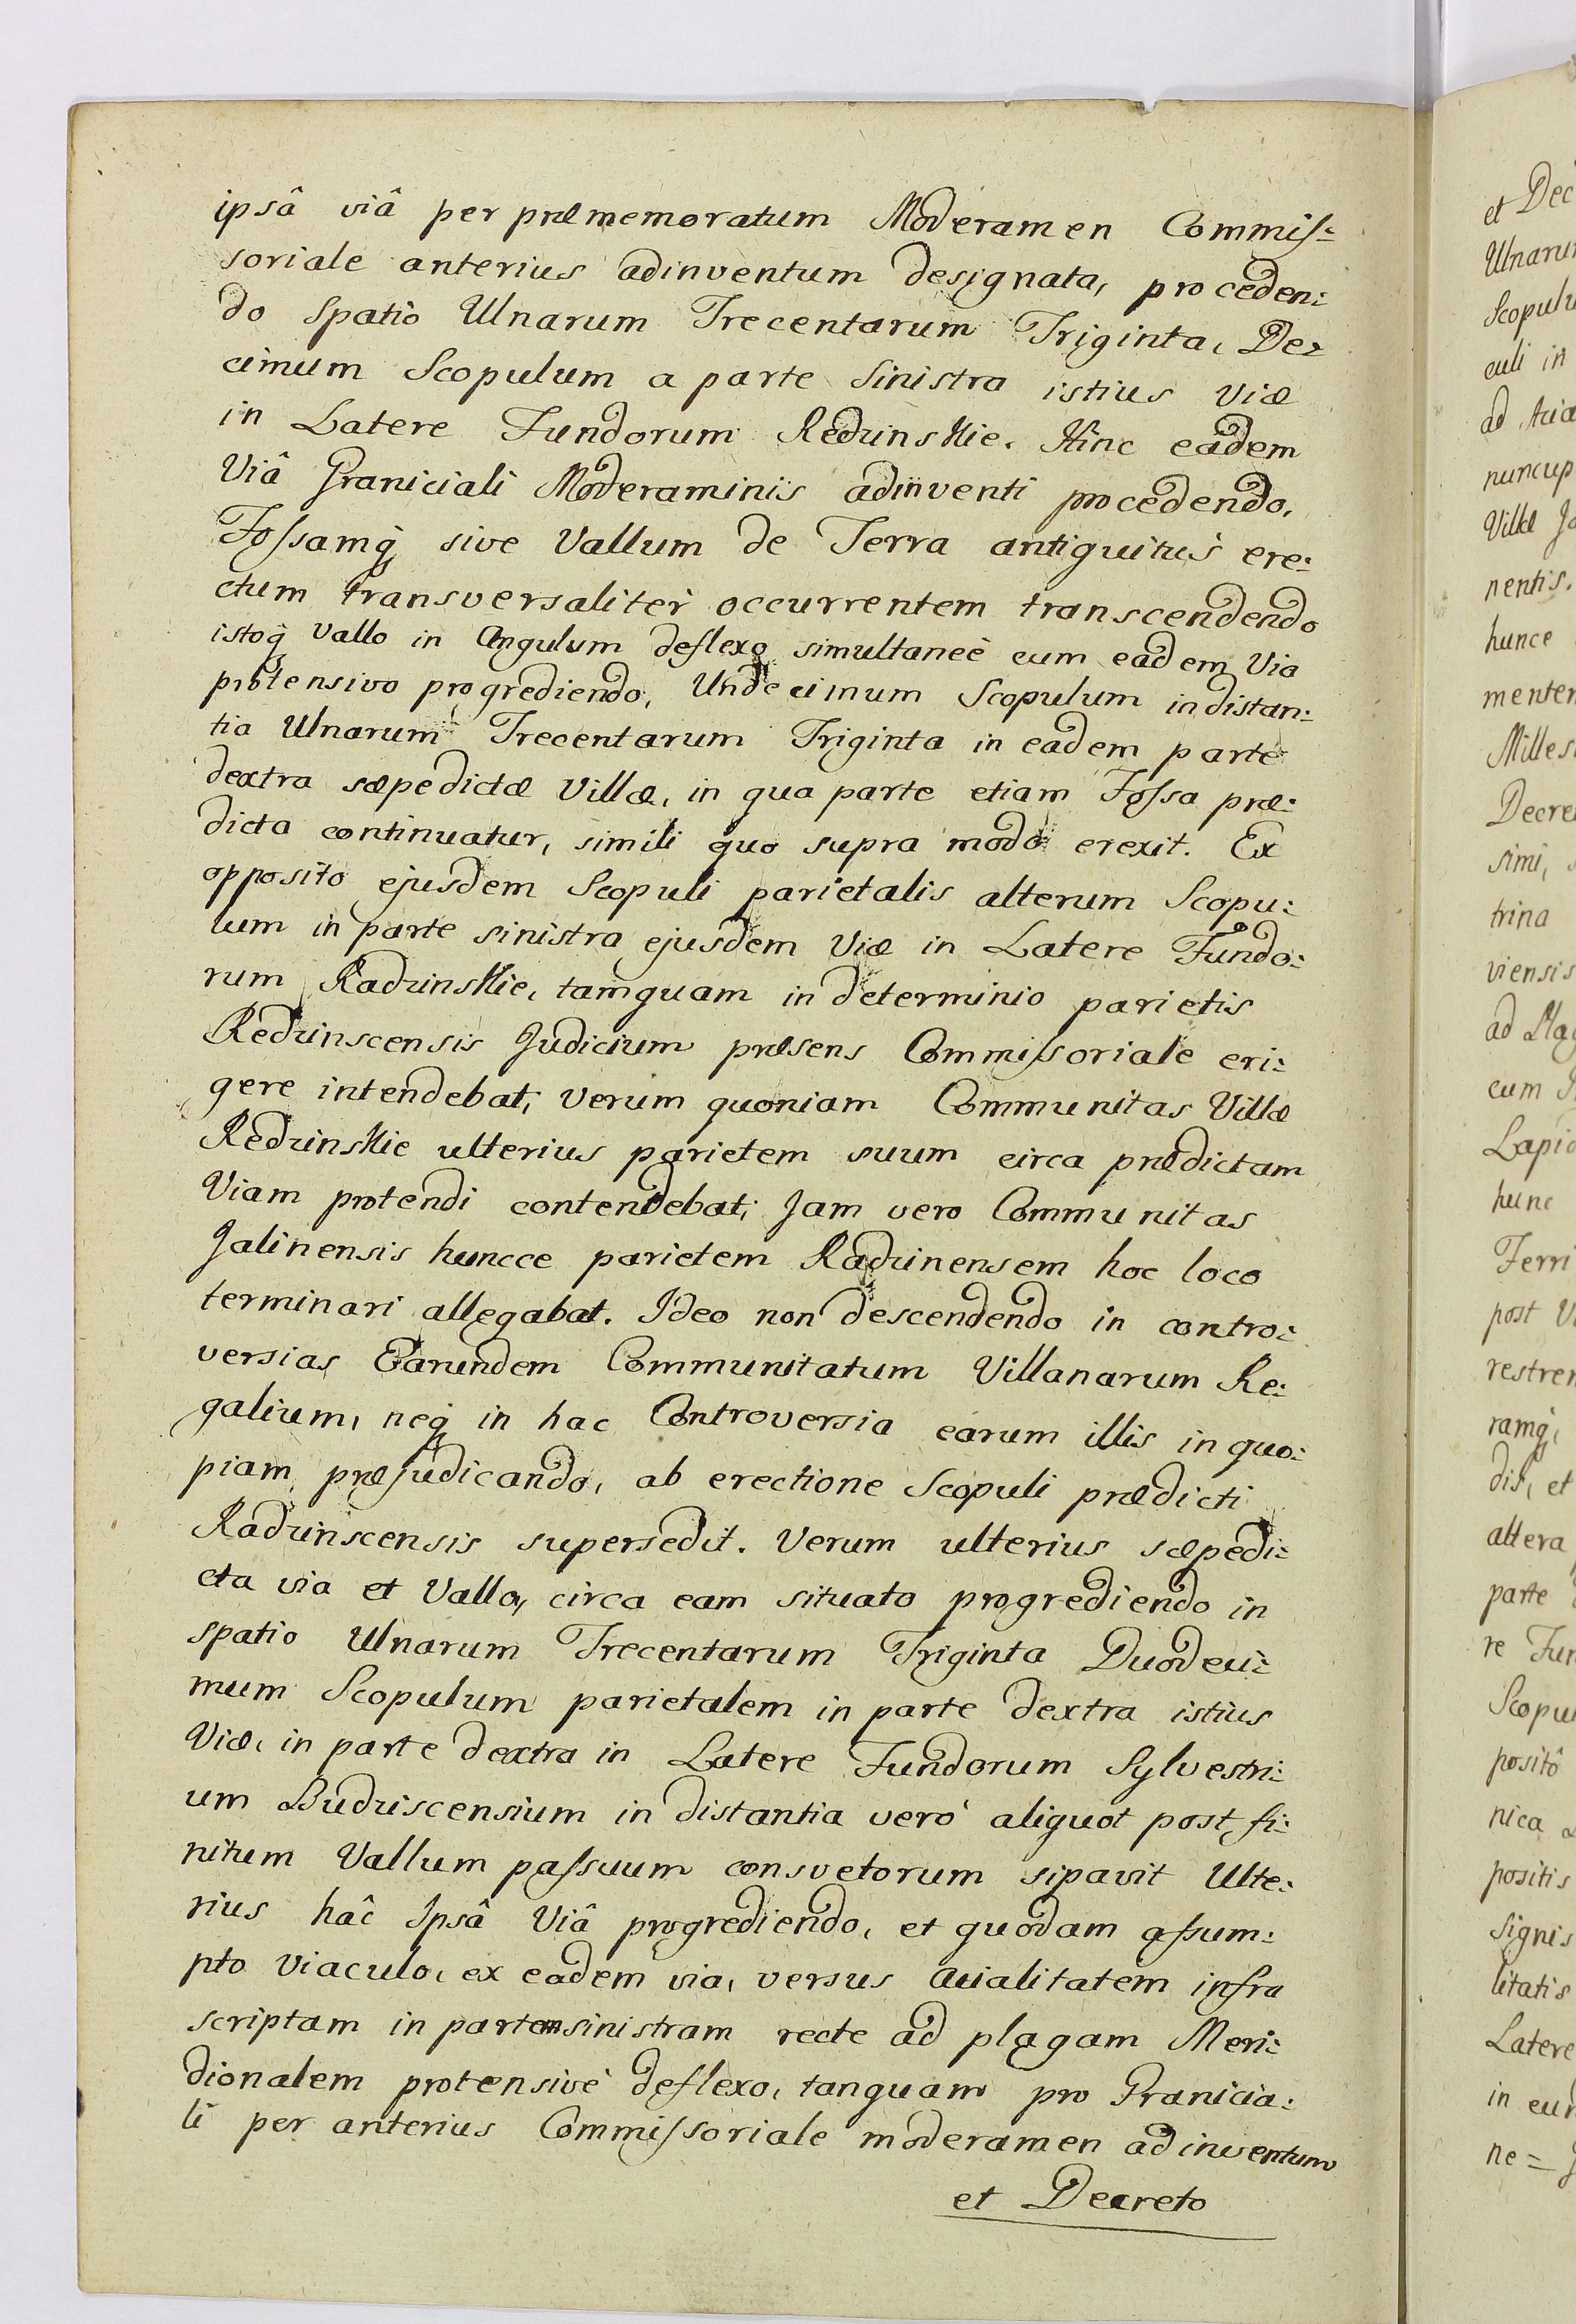 ipsâ viâ per præmemoratum Moderamen Commis-
soriale anterius adinventum designata, proceden-
do Spatio Ulnarum Trecentarum Triginta, De-
cimum Scopulum a parte Sinistra istius Viæ
in Latere Fundorum Redzinskie. Hinc eâdem
Viâ Graniciali Moderaminis adinventi procedendo,
Fossamq sive Vallum de Terra antiquitus ere-
ctum transversaliter occurrentem transcendendo
istoq Vallo in Angulum deflexo simultaneè cum eadem Via
protensivo progrediendo, Undecimum Scopulum in distan-
tia Ulnarum Trecentarum Triginta in eadem parte
dextra sæpedictæ Villæ, in qua parte etiam Fossa præ-
dicta continuatur, simili quo supra modo erexit. Ex
opposito ejusdem Scopuli parietalis alterum Scopu-
lum in parte sinistra ejusdem Viæ in Latere Fundo-
rum Radzinskie, tamquam in determinio parietis
Redzinscensis Judicium præsens Commissoriale eri-
gere intendebat, Verum quoniam Communitas Villæ
Redzinskie ulterius parietem suum circa prædictam
Viam protendi contendebat, Jam vero Communitas
Jalinensis huncce parietem Radzinensem hoc loco
terminari allegabat. Ideo non descendendo in contro-
versias Earundem Communitatum Villanarum Re-
galium, neq in hac Controversia earum illis in quo-
piam præjudicando, ab erectione Scopuli prædicti
Radzinscensis supersedit. Verum ulterius sæpedi-
cta via et Vallo, circa eam situato progrediendo in
spatio Ulnarum Trecentarum Triginta Duodeci-
mum Scopulum parietalem in parte dextra istius
Viæ, in parte dextra in Latere Fundorum Sylvestri-
um Budziscensium in distantia vero aliquot post fi-
nitum Vallum passuum consvetorum sipavit Ulte-
rius hâc Ipsâ Viâ progrediendo, et quodam assum-
pto Viaculo, ex eadem via, versus Acialitatem infra
scriptam in partem sinistram recte ad plagam Meri-
dionalem protensivè deflexo, tanquam pro Granicia-
li per anterius Commissoriale moderamen adinventum
et Decreto
et Dec
Ulnarum
Scopulu
culi in
ad Acia
nuncup
Villæ Ja
nentis.
hunce
menten
Milles
Decre
simi,
trina
viensis
ad Plag
cum
Lapid
hunc
Ferri
post
restren
ramq,
dis, et
altera
parte
re Fun
Scopu
positô
nica
positis
Signis
litatis
Latere
in eun
ne =